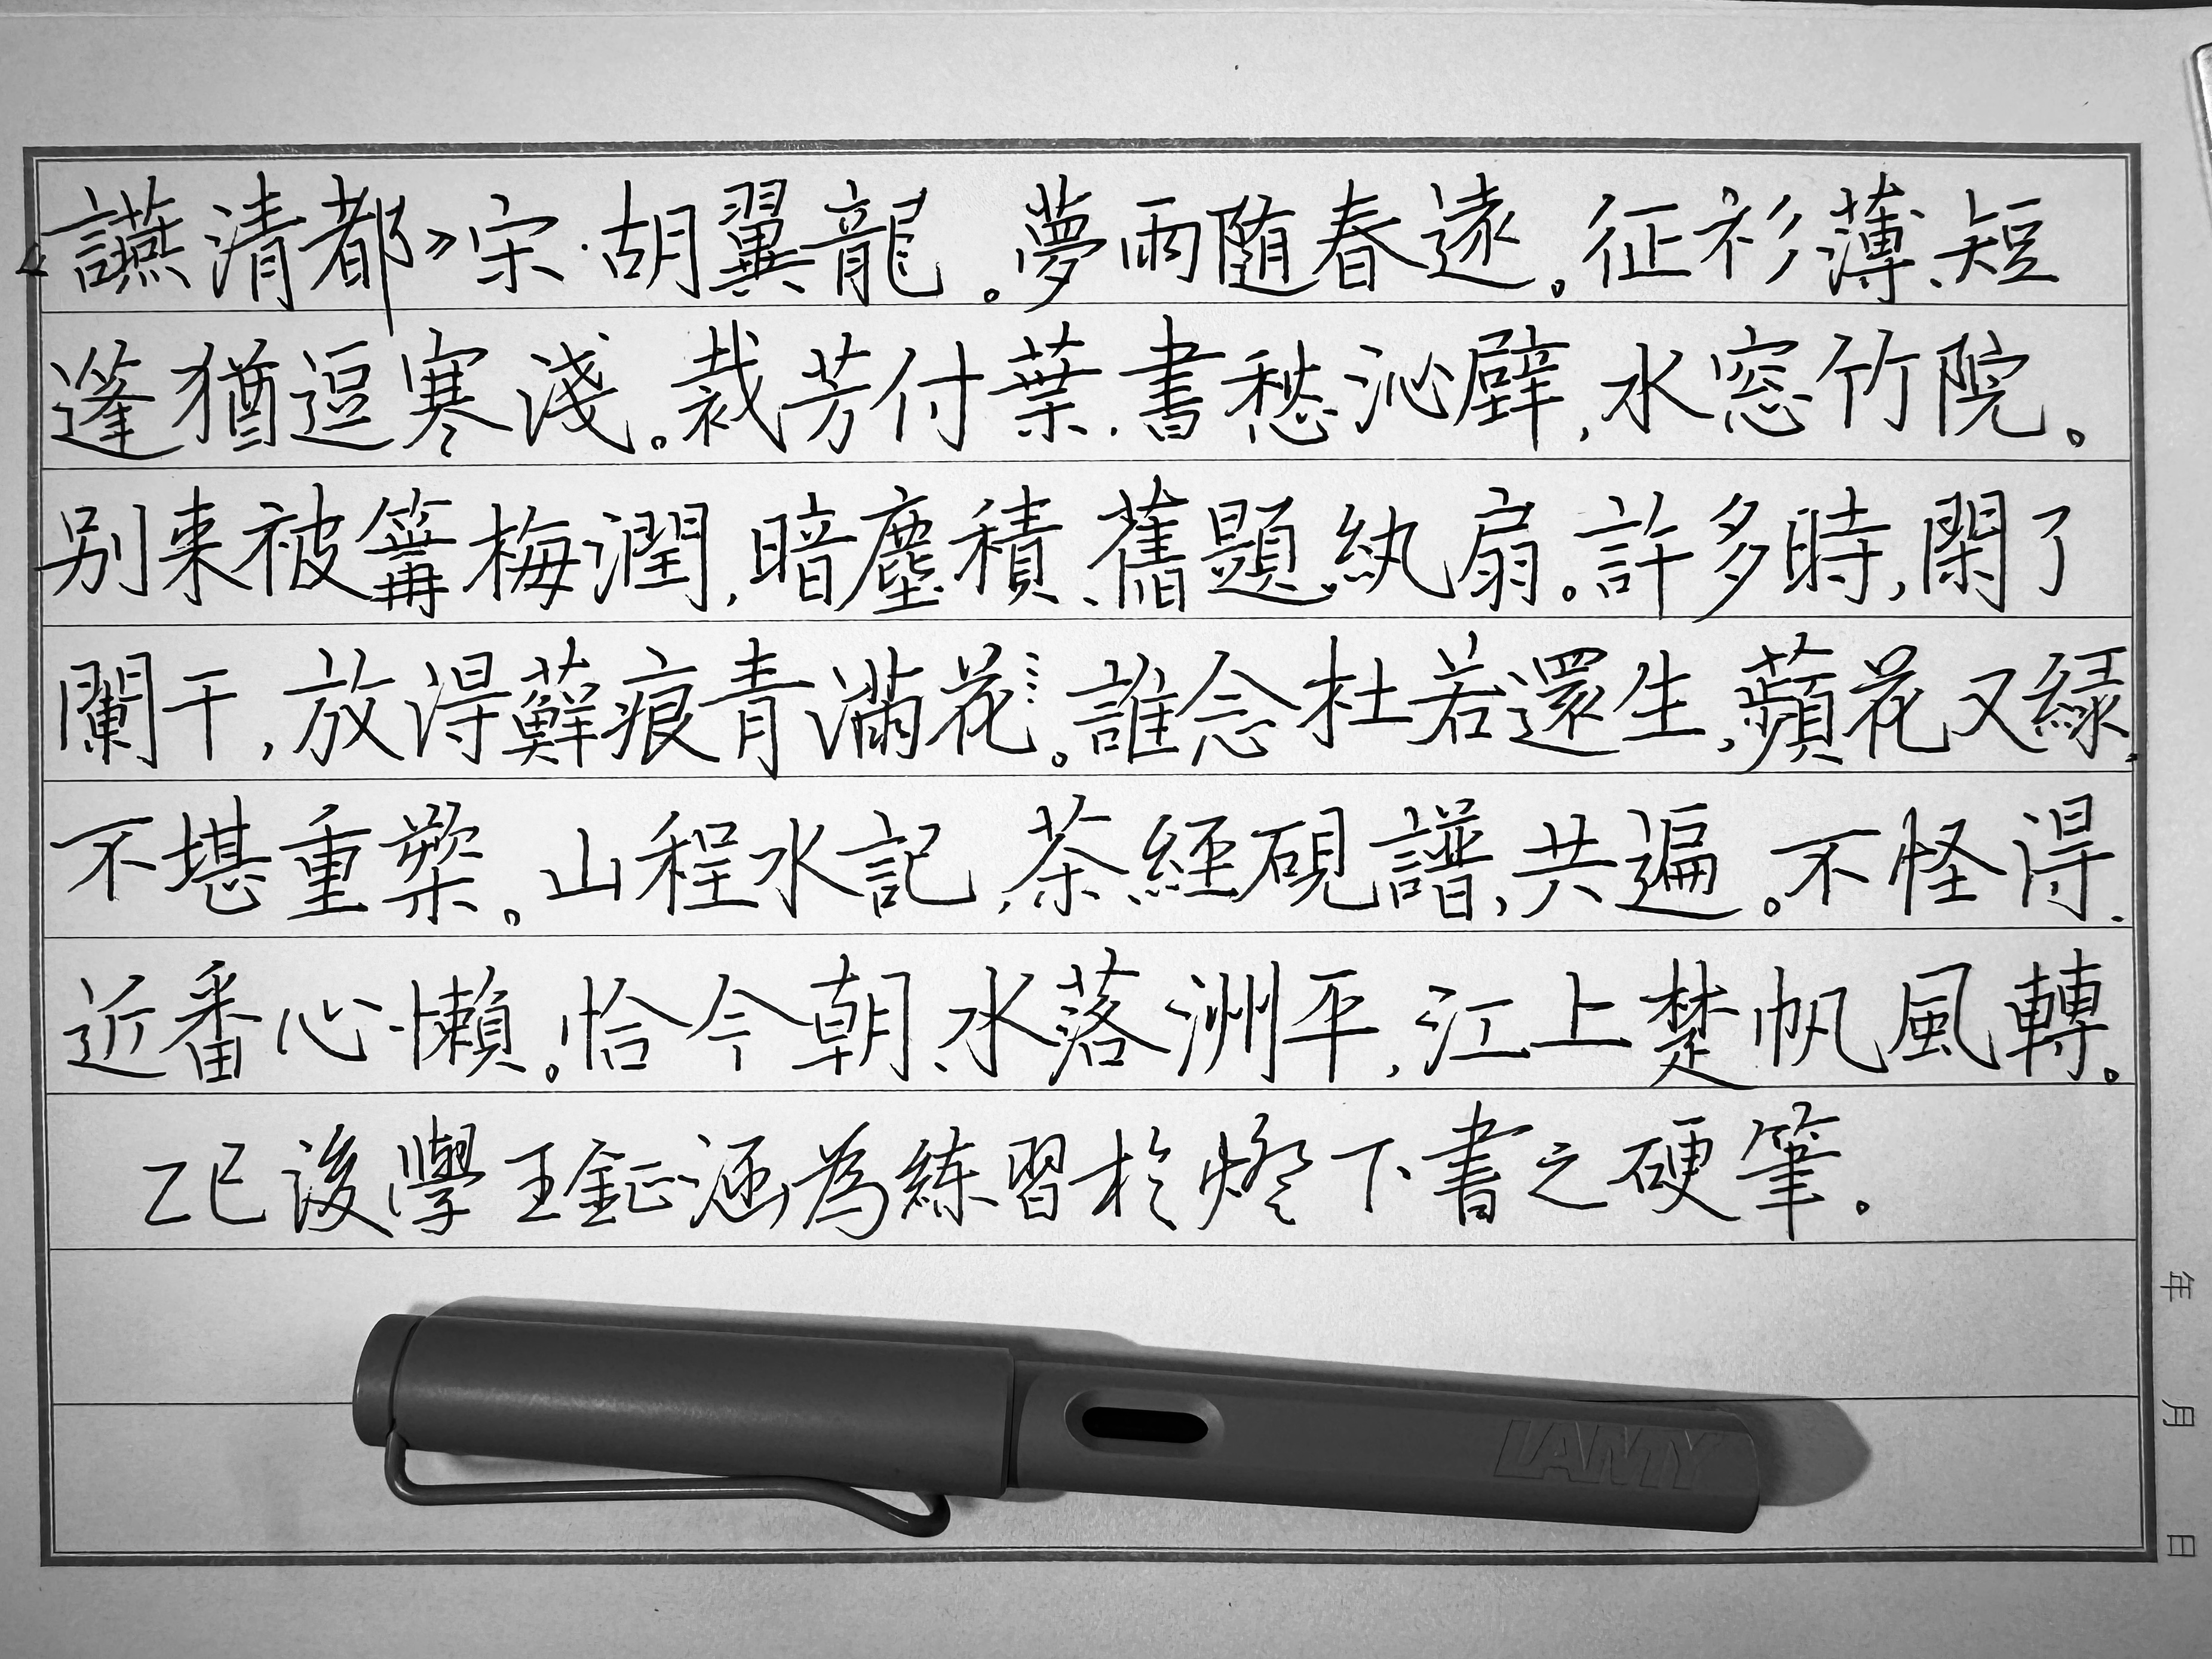 《讌清都》宋·胡翼龍。夢雨随春遠。征衫薄、短
篷猶逗寒淺。裁芳付葉,書愁沁壁,水窓竹院。
别来被篝梅潤,暗塵積、舊題紈扇。許多時,閑了
闌干,放得蘚痕青滿花⋮。誰念杜若還生,蘋花又緑,
不堪重槳。山程水記,茶經硯譜,共遍。不怪得、
近番心懶。恰今朝、水落洲平,江上楚帆風轉。
乙巳後學王鉦涵為練習於燈下書之硬筆。
LAMY
年 月 日